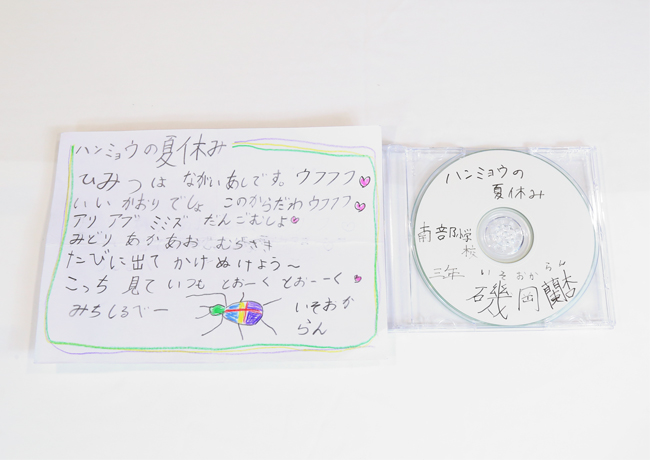 ハンミョウの夏休み
ひみつは ながいあしです。ウフフフ
いいかおりでしょ このからだわウフフフ
アリ アブ ミミズ だんごむしよ
みどり あか あお むらさき
たびに出て かけぬけよう〜
こっち 見て いつも とおーく とおーーく
みちしるべー
いそおか
らん
ハンミョウの
夏休み
南部小学
校
三年
いそおから ん
磯岡蘭